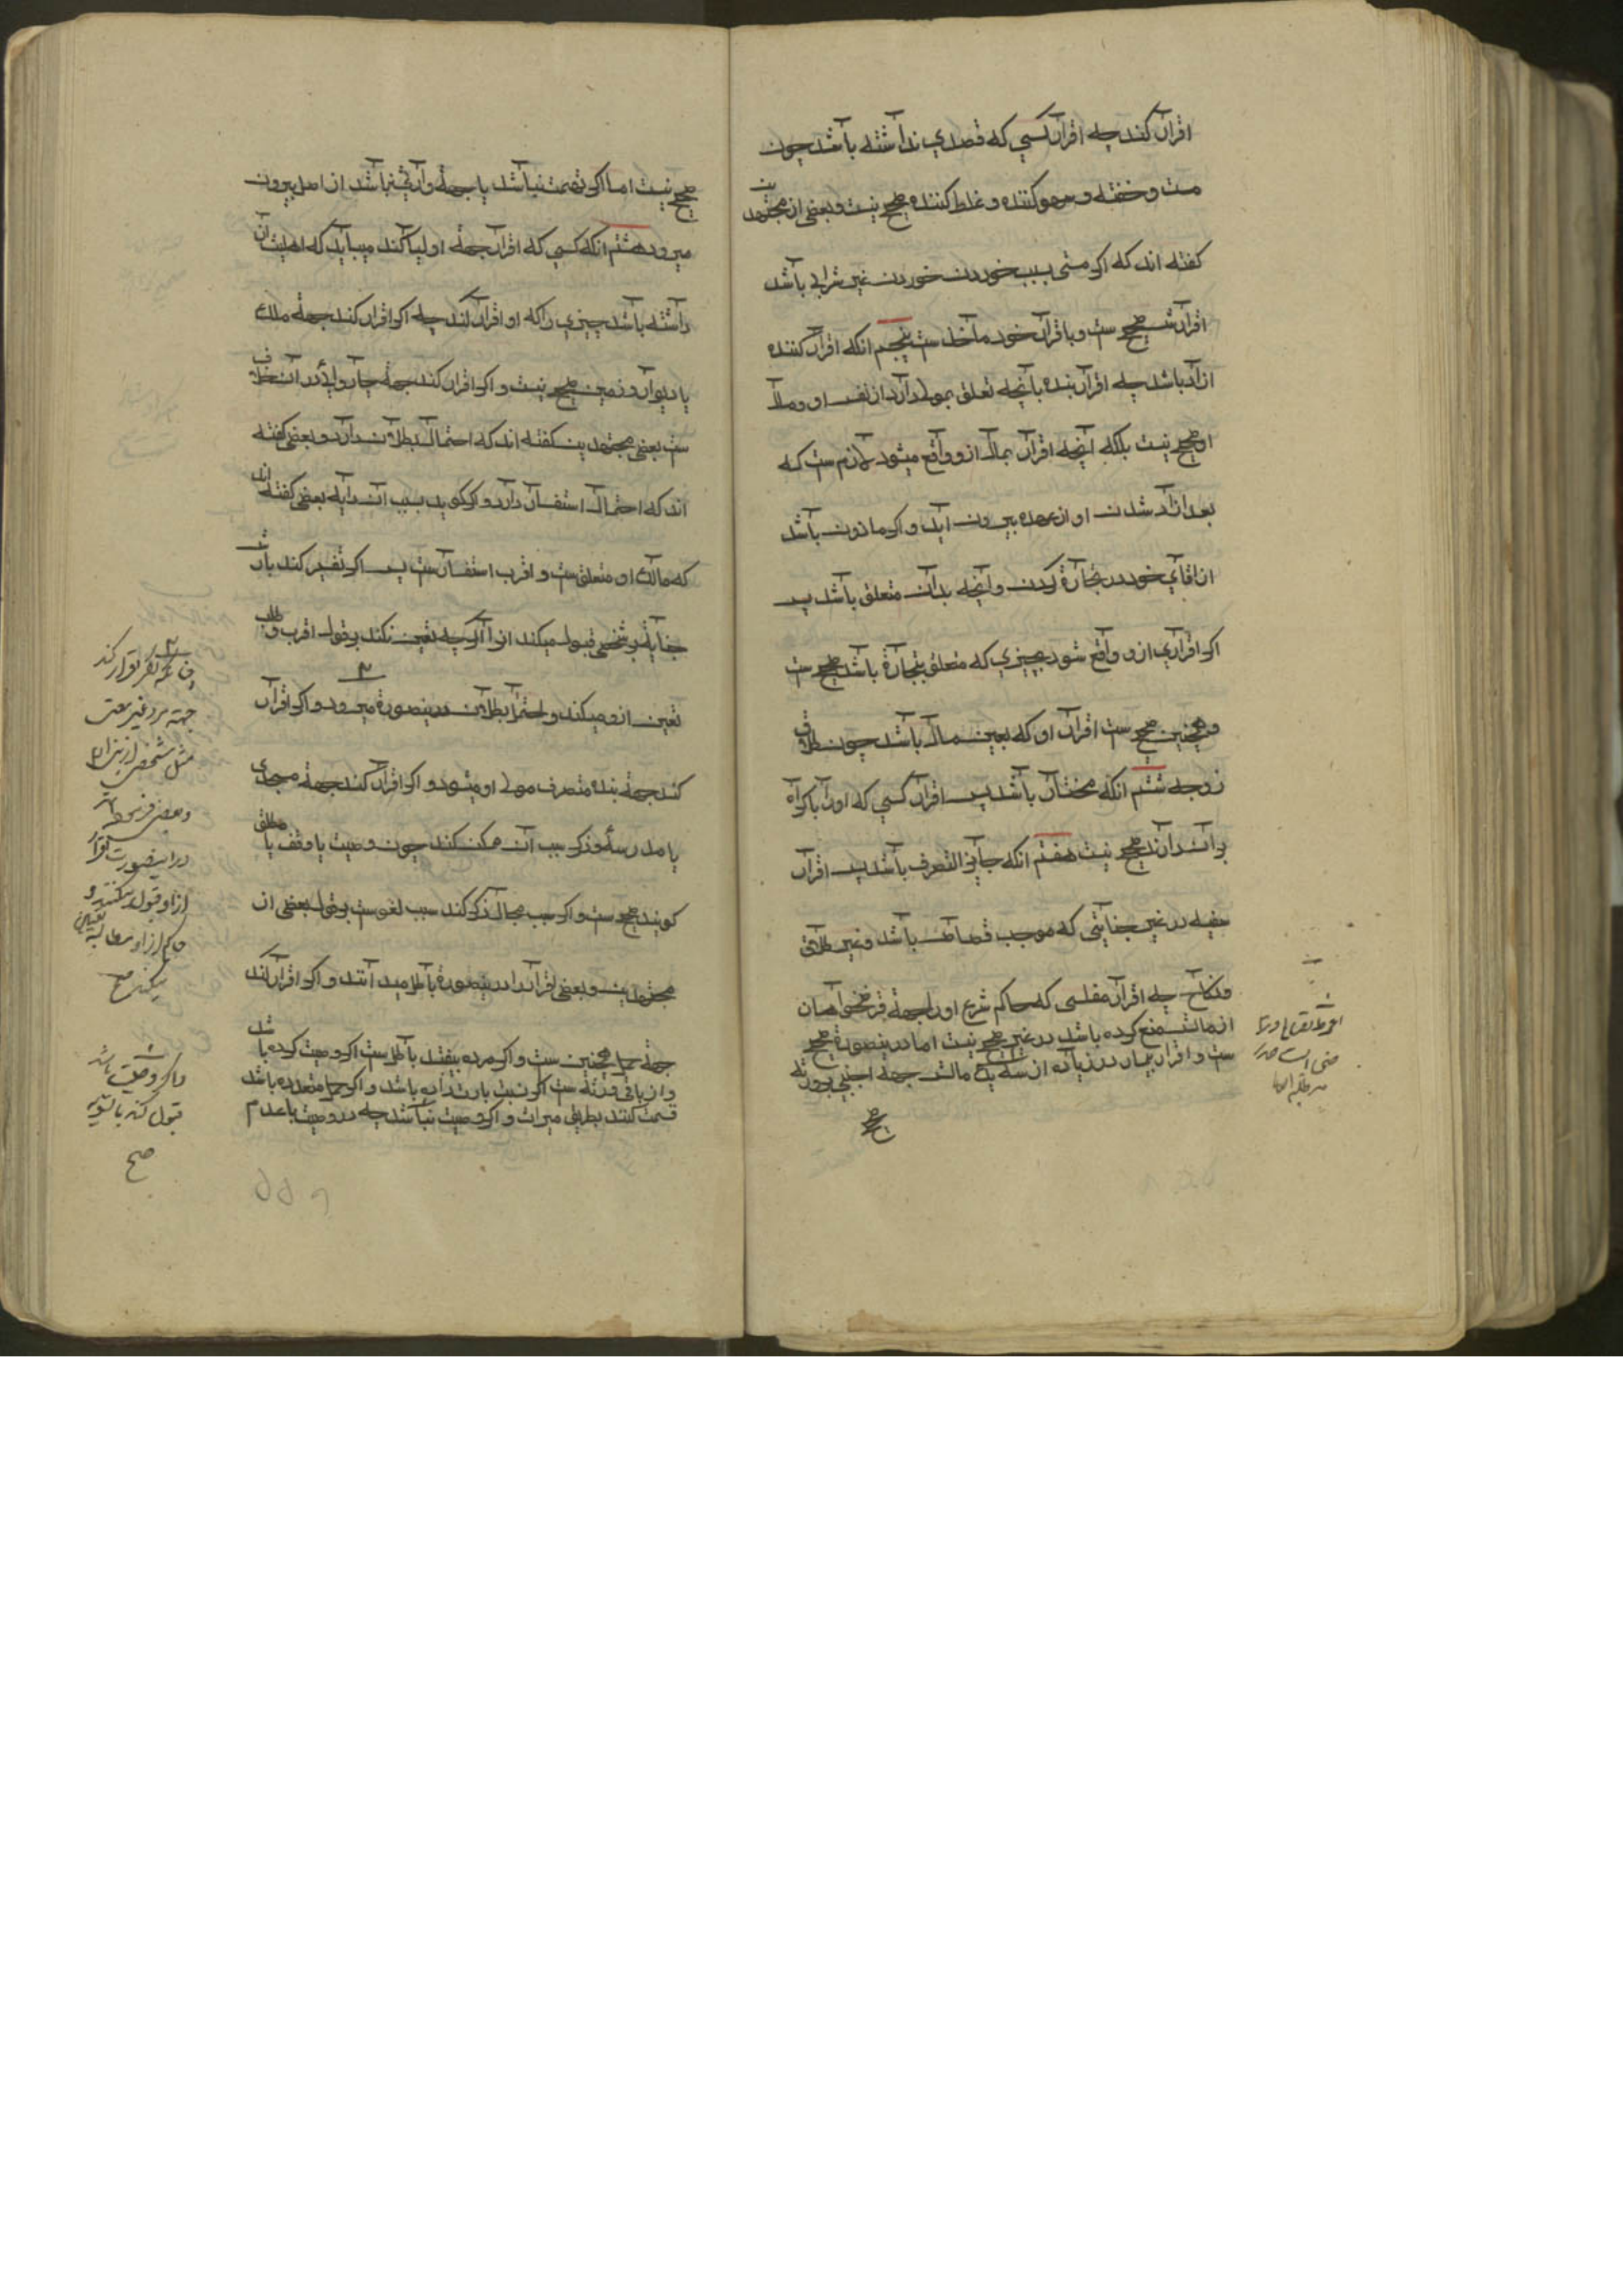 اقرار کند چه اقرار کسی که قصدی نداشته باشد چون
مست و خفته و سهو کننده و غلط کننده صحیح نیست و بعضی از مجتهدین
کفته اند که اکر مستی بسبب خوردن خوردن غیر شراب باشد
اقرارش صحیح ست و باقرار خود ماخذ ست پنجم انکه اقرار کننده
ازاد باشد چه اقرار بنده بانچه تعلق بمولی دارد از نفس او و مال
او صحیح نیست بلکه آنچه اقرار بمال ازو واقع میشود لازم ست که
بعد ازاد شدن او از عهده بیرون اید و اکر ماذون باشد
از اقای خود در تجارة کردن و آنچه بدان متعلق باشد پس
اکر اقراری ازو واقع شود بچیزی که متعلق بتجارة باشد صحیح ست
و همچنین صحیح ست اقرار او که بغیر مال باشد چون طلاق
زوجه ششم انکه مختار باشد پس اقرار کسی که او را باکراه
بران دارند صحیح نیست هفتم انکه جایز التصرف باشد پس اقرار
سفیه در غیر جنایتی که موجب قصاص باشد و غیر طلاق
و نکاح چه اقرار مفلسی که حاکم شرع او را بجهة قرضخواهان
از مالش منع کرده باشد در غیر صحیح نیست اما درینصورة صحیح
ست و اقرار بیمار در زیاده از سه یک مالش جهة اجنبی و ورثه
صحیح نیست اما اکر تهمت نباشد یا بجهة وارثش نباشد از اصل بیرون
میرود هشتم انکه کسی که اقرار جهة او لیاکند میباید که اهلیت ان
داشته باشد چیزی را که او اقرار کند چه اکر اقرار کند جهة ملک
یا دیوار و زمین صحیح نیست و اکر اقرار کند جهة چاروا پا در ان خلاف
ست بعضی مجتهدین کفته اند که احتمال بطلان دارد و بعضی کفته
اند که احتمال استفسار دارد و اکر کوید بسبب ان دابه بعضی کفته اند
که مالک او متعلق ست و اقرب استفسار ست پس اکر تفسیر کند بارش
جنایة بر شخصی قبول میکند از او اکر چه تعین نکند بر قول اقرب و طلب
تعین ازو میکند و احتمال بطلان درینصورة میرود و اکر اقرار
کند جهة بنده متصرف مولی او میشود و اکر اقرار کند جهة مسجدی
یا مدرسة و ذکر سبب ان ممکن کند چون وصیت یا وقف یا مطلق
کویند صحیح ست و اکر سبب محال ذکر کند سبب لغو ست بر قول بعضی از
مجتهدین و بعضی اقرار را درینصورة باطل میدانند و اکر اقرار کند
جهة حمل همچنین ست و اکر مرده بیفتد باطل ست اکر وصیت کرده باشد
و از باقی ورثه ست اکر نسبت بارث داده باشد و اکر حمل متعدد باشد
قسمت کنند بطریق میراث و اکر وصیت نباشد چه در وصیت با عدم
جهة مرد غیر معین
مثل شخصی از
درینصورت اقرار
از او قبول میکنند و
حاکم از او مطالبه تعیین
میکند صح
و اکر وصیت باشد
قبول کند بالسویه
صح